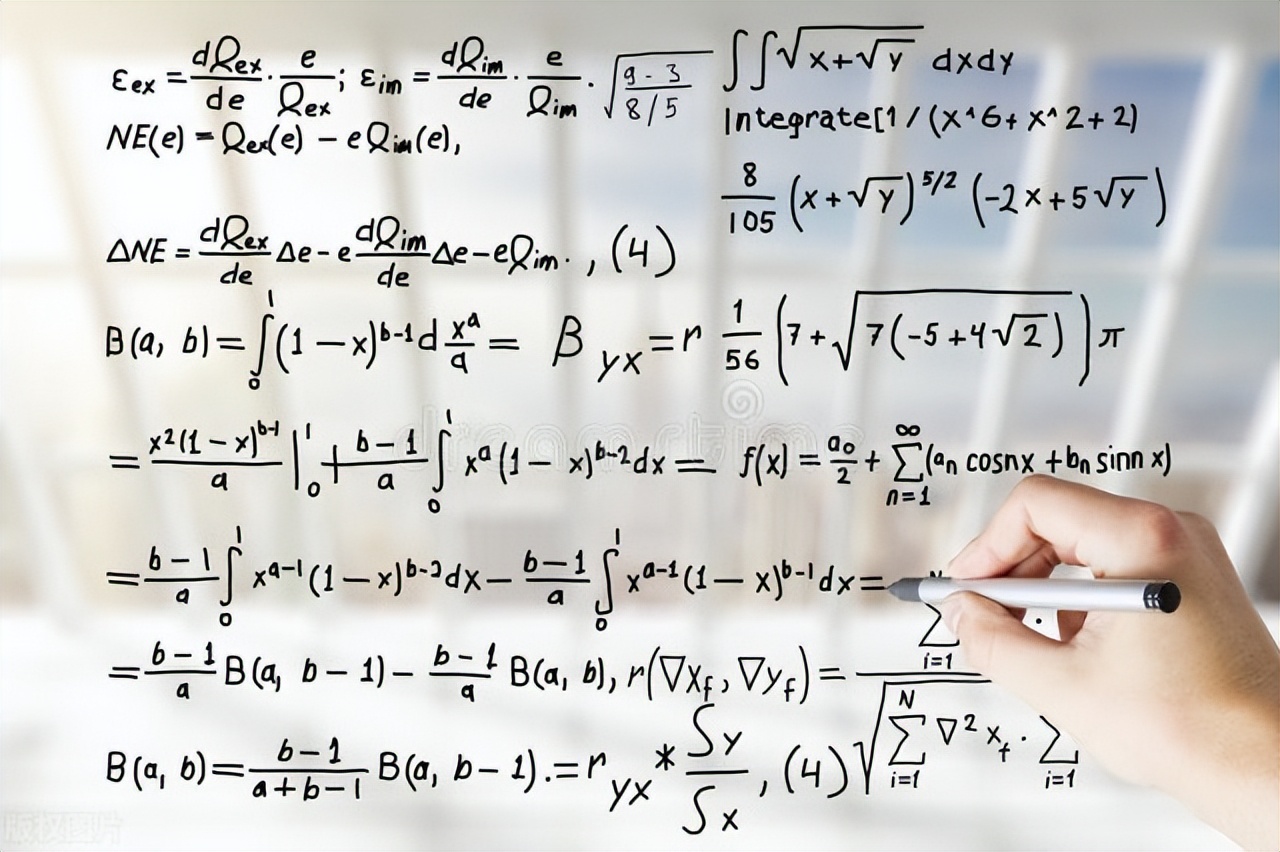 εex = dQex/de · e/Qex ; εim = dQim/de · e/Qim · √((9 - 3)/(8/5))
∫∫√(x+√y) dxdy
NE(e) = Qex(e) − eQim(e),
Integrate[1/(x^6+x^2+2)
8/105 (x+√y)^5/2 (-2x+5√y)
ΔNE = dQex/de Δe − e dQim/de Δe − eQim. , (4)
B(a, b) = ∫₀¹ (1−x)^b-1 d x^a/a = β yx = r
1/56 (7+√(7(-5+4√2))) π
= x²(1−x)^b-1/a |₀¹ + b−1/a ∫₀¹ x^a (1−x)^b-2 dx =
f(x) = a₀/2 + ∑ n=1 ∞ (an cosnx + bn sinn x)
= b−1/a ∫₀¹ x^a-1 (1−x)^b-2 dx − b−1/a ∫₀¹ x^a-1 (1−x)^b-1 dx =
= b−1/a B(a, b−1) − b−1/a B(a, b), r(∇xf, ∇yf) = ∑ i=1 ·
B(a, b) = b−1/a+b−1 B(a, b−1). = r yx * Sy/Sx , (4)
√ ∑ i=1 N ∇² xf · ∑ i=1
dreamstime
版权图片